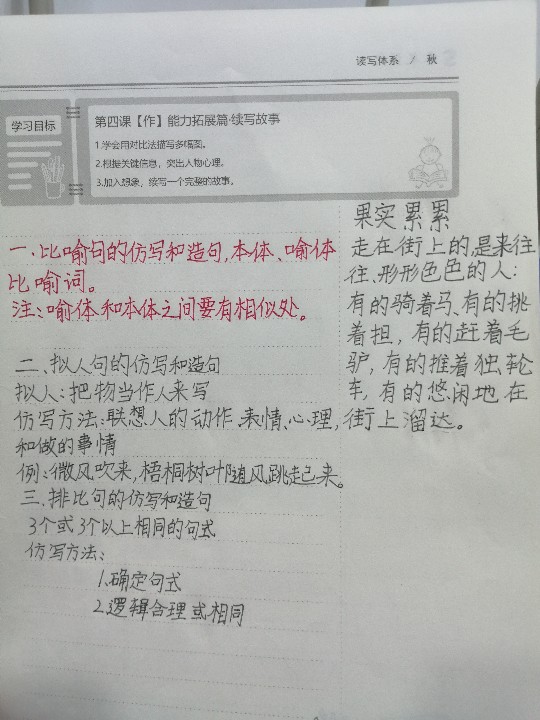 读写体系 / 秋
学习目标
第四课【作】能力拓展篇·续写故事
1.学会用对比法描写多幅图。
2.根据关键信息，突出人物心理。
3.加入想象，续写一个完整的故事。
一.比喻句的仿写和造句,本体、喻体
比喻词。
注:喻体和本体之间要有相似处。
二、拟人句的仿写和造句
拟人:把物当作人来写
仿写方法:联想人的动作、表情、心理,
和做的事情
例:微风吹来,梧桐树叶随风跳起来。
三.排比句的仿写和造句
3个或3个以上相同的句式
仿写方法:
1.确定句式
2.逻辑合理或相同
果实累累
走在街上的,是来往
往、形形色色的人:
有的骑着马、有的挑
着担,有的赶着毛
驴,有的推着独轮
车,有的悠闲地在
街上溜达。